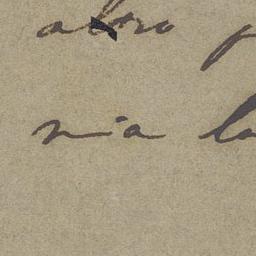 altro p
nia la